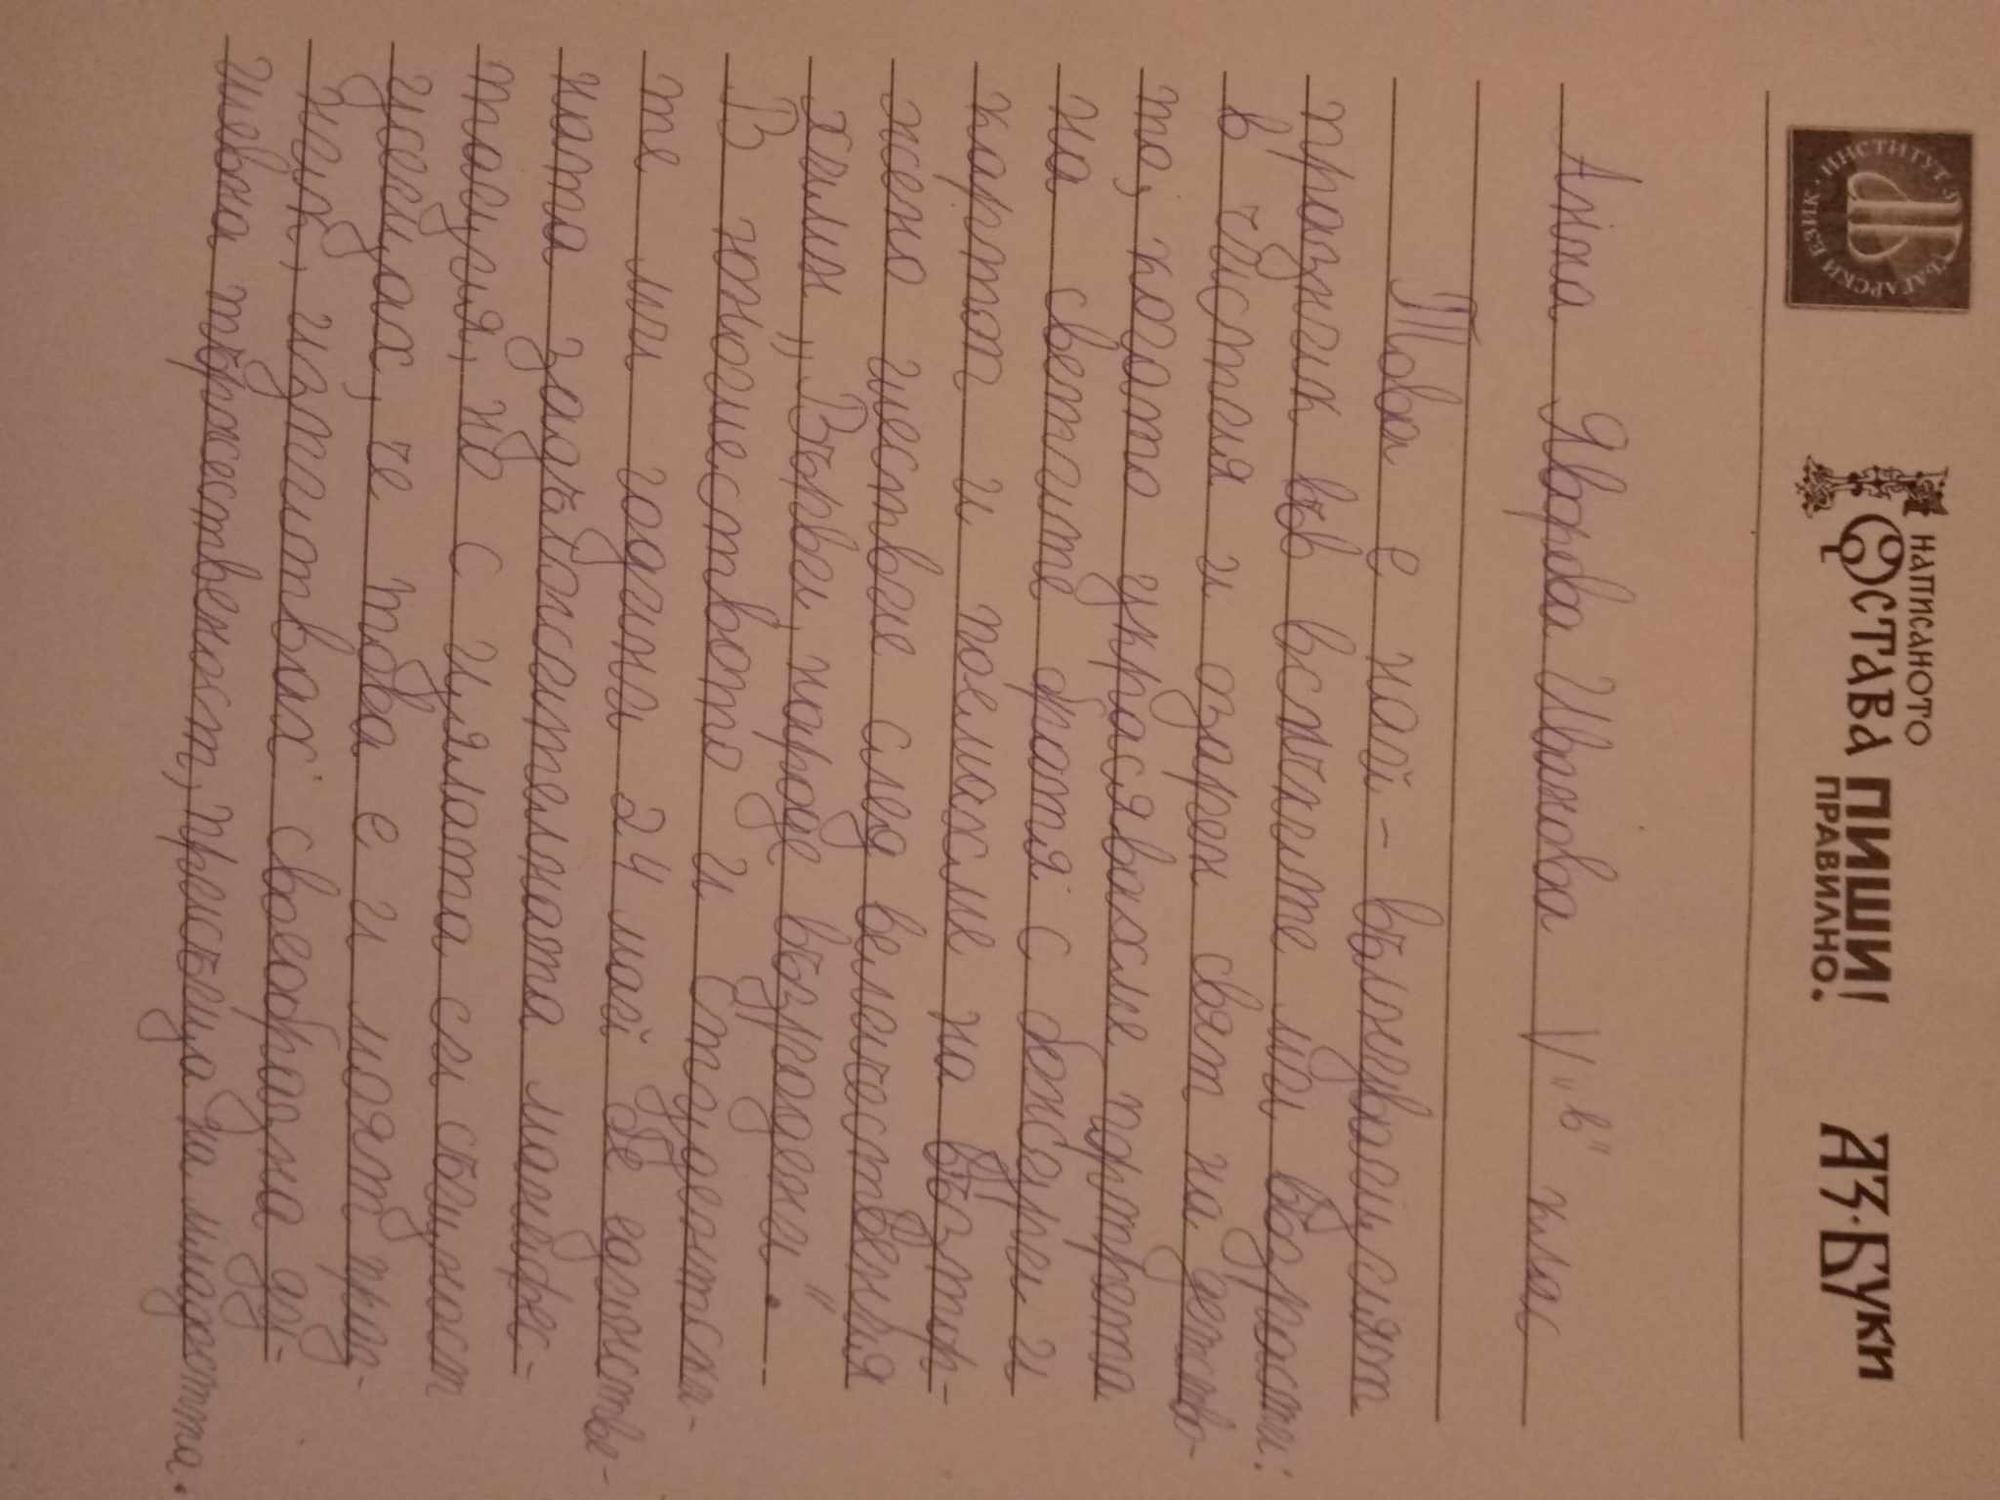 ИНСТИТУТ ЗА БЪЛГАРСКИ ЕЗИК
НАПИСАНОТО ОСТАВА ПИШИ! ПРАВИЛНО.
АЗ·БУКИ
Анна Яворова Иванова V "в" клас
Това е най-вълнуващият
празник във всичките ми възрасти:
в чистия и озарен свят на детство-
то, когато украсявахме портрета
на светите братя с бенгури и
картат и поемахме на възтор-
жено шествие след величествения
химн „Върви, народе възродени".
В юношеството и студентски-
те ми години 24 май бе единстве-
ната задължителната манифес-
тация, но с цялата си същност
усещах, че това е и моят праз-
ник, изпитвах своеобразна ду-
шевна тържественост, присъща на младостта.